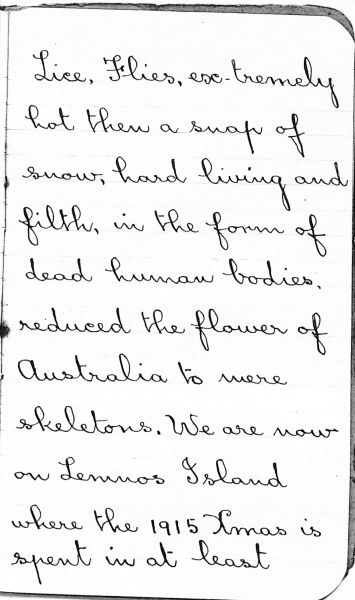 Lice, Flies, ex-tremely
hot then a snap of
snow, hard living and
filth, in the form of
dead human bodies,
reduced the flower of
Australia to mere
skeletons. We are now
on Lemnos Island
where the 1915 Xmas is
spent in at least